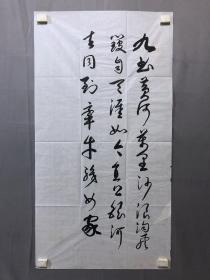 九曲黄河萬里沙浪淘风
簸自天涯如今直上银河
去同到牵牛织女家